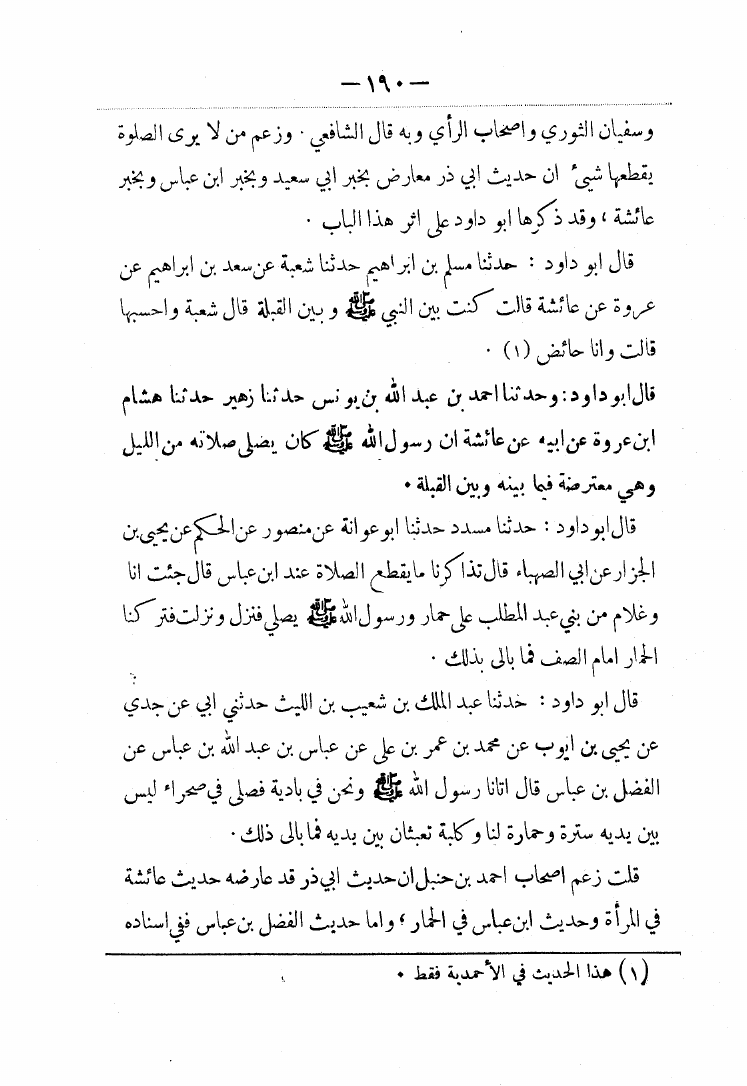 — ١٩٠ —
وسفيان الثوري واصحاب الرأي وبه قال الشافعي . وزعم من لا يرى الصلوة
يقطعها شيئ ان حديث ابي ذر معارض بخبر ابي سعيد وبخبر ابن عباس وبخبر
عائشة ، وقد ذكرها ابو داود على اثر هذا الباب .
قال ابو داود : حدثنا مسلم بن ابراهيم حدثنا شعبة عن سعد بن ابراهيم عن
عروة عن عائشة قالت كنت بين النبي ﷺ و بين القبلة قال شعبة واحسبها
قالت وانا حائض (١) .
قال ابو داود : وحدثنا احمد بن عبد الله بن يونس حدثنا زهير حدثنا هشام
ابن عروة عن ابيه عن عائشة ان رسول الله ﷺ كان يصلى صلاته من الليل
وهي معترضة فيما بينه وبين القبلة .
قال ابو داود : حدثنا مسدد حدثنا ابو عوانة عن منصور عن الحكم عن يحيى بن
الجزار عن ابي الصهباء قال تذاكرنا ما يقطع الصلاة عند ابن عباس قال جئت انا
وغلام من بني عبد المطلب على حمار ورسول الله ﷺ يصلي فنزل ونزلت فتركنا
الحمار امام الصف فما بالى بذلك .
قال ابو داود : حدثنا عبد الملك بن شعيب بن الليث حدثني ابي عن جدي
عن يحيى بن ايوب عن محمد بن عمر بن علي عن عباس بن عبد الله بن عباس عن
الفضل بن عباس قال اتانا رسول الله ﷺ ونحن في بادية فصلى في صحراء ليس
بين يديه سترة وحمارة لنا وكلبة تعبثان بين يديه فما بالى ذلك .
قلت زعم اصحاب احمد بن حنبل ان حديث ابي ذر قد عارضه حديث عائشة
في المرأة وحديث ابن عباس في الحمار ، واما حديث الفضل بن عباس ففي اسناده
(١) هذا الحديث في الأحمدية فقط .